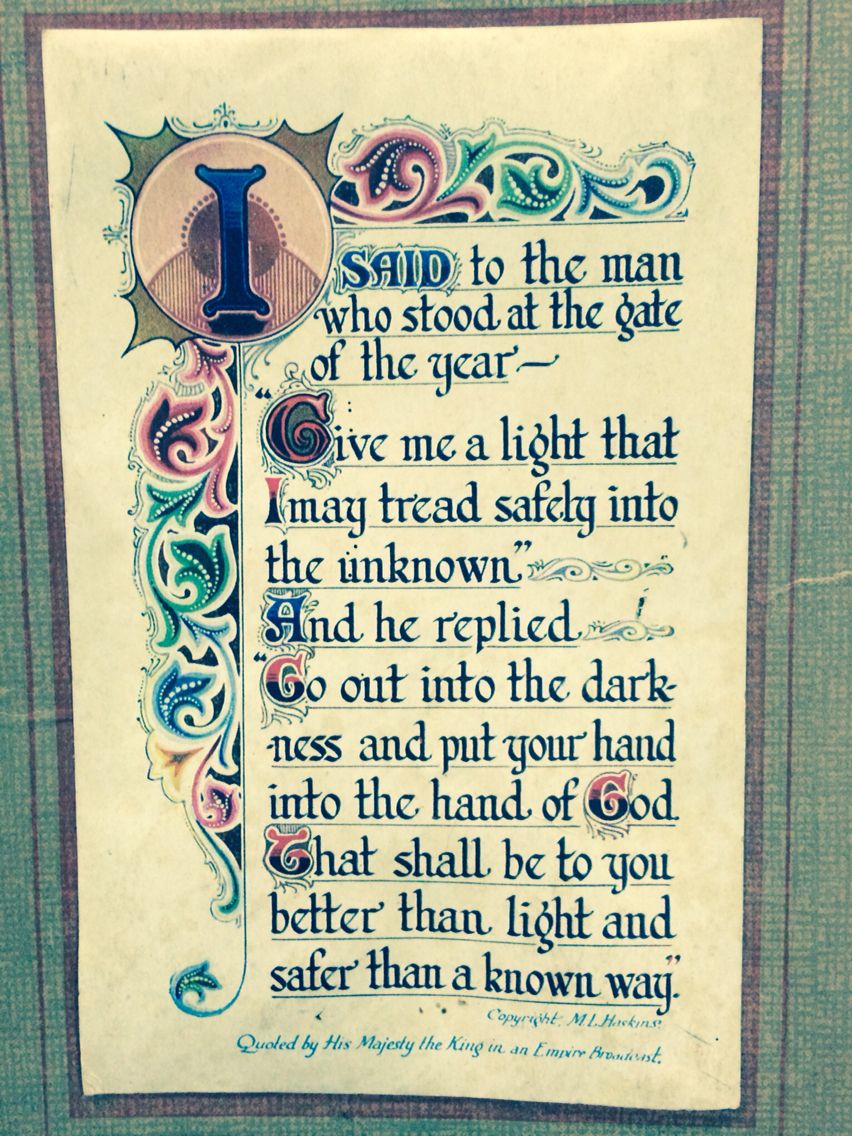 I SAID to the man
who stood at the gate
of the year—
"Give me a light that
I may tread safely into
the unknown"
And he replied
"Go out into the dark-
-ness and put your hand
into the hand of God
That shall be to you
better than light and
safer than a known way."
Copyright. M.L.Haskins.
Quoted by His Majesty the King in an Empire Broadcast.